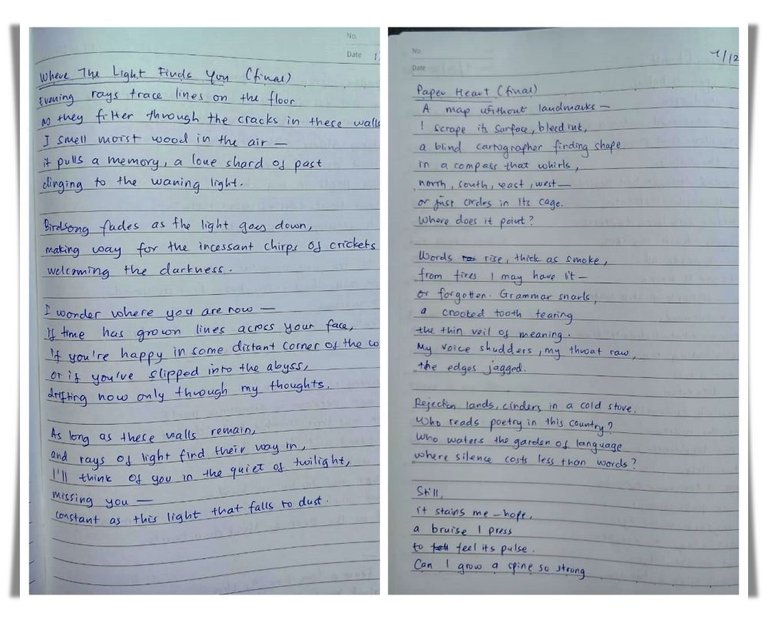 No.
Date 1
Where The Light Finds You (final)
Evening rays trace lines on the floor
As they filter through the cracks in these walls
I smell moist wood in the air —
it pulls a memory, a lone shard of past
clinging to the waning light.
Birdsong fades as the light goes down,
making way for the incessant chirps of crickets
welcoming the darkness.
I wonder where you are now —
If time has grown lines across your face,
If you're happy in some distant corner of the wo
or if you've slipped into the abyss,
drifting now only through my thoughts.
As long as these walls remain,
and rays of light find their way in,
I'll think of you in the quiet of twilight,
missing you —
constant as this light that falls to dust.
No.
Date
1/12
Paper Heart (final)
A map without landmarks —
I scrape its surface, bleed ink,
a blind cartographer finding shape
in a compass that whirls,
north, south, east, west —
or just circles in its cage.
Where does it point?
Words rise, thick as smoke,
from fires I may have lit —
or forgotten. Grammar snarls,
a crooked tooth tearing
the thin veil of meaning.
My voice shudders, my throat raw,
the edges jagged.
Rejection lands, cinders in a cold stove.
Who reads poetry in this country?
Who waters the garden of language
where silence costs less than words?
Still,
it stains me — hope,
a bruise I press
to feel its pulse.
Can I grow a spine so strong